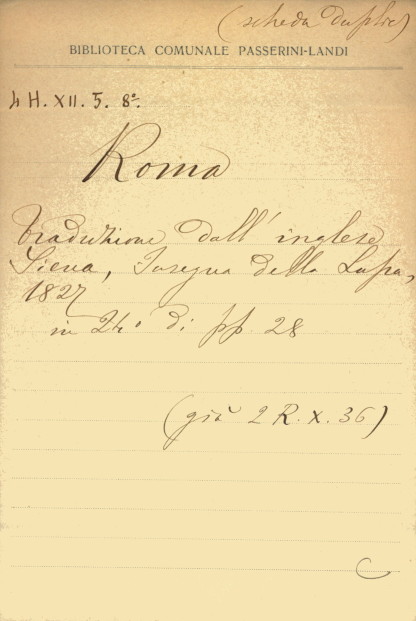 (scheda duplic)
BIBLIOTECA COMUNALE PASSERINI-LANDI
4 H. XII. 5. 8º.
Roma
Traduzione dall' inglese
Siena, Insegna della Lupa,
1827
in 24º di pp 28
(già 2 R. X. 36)